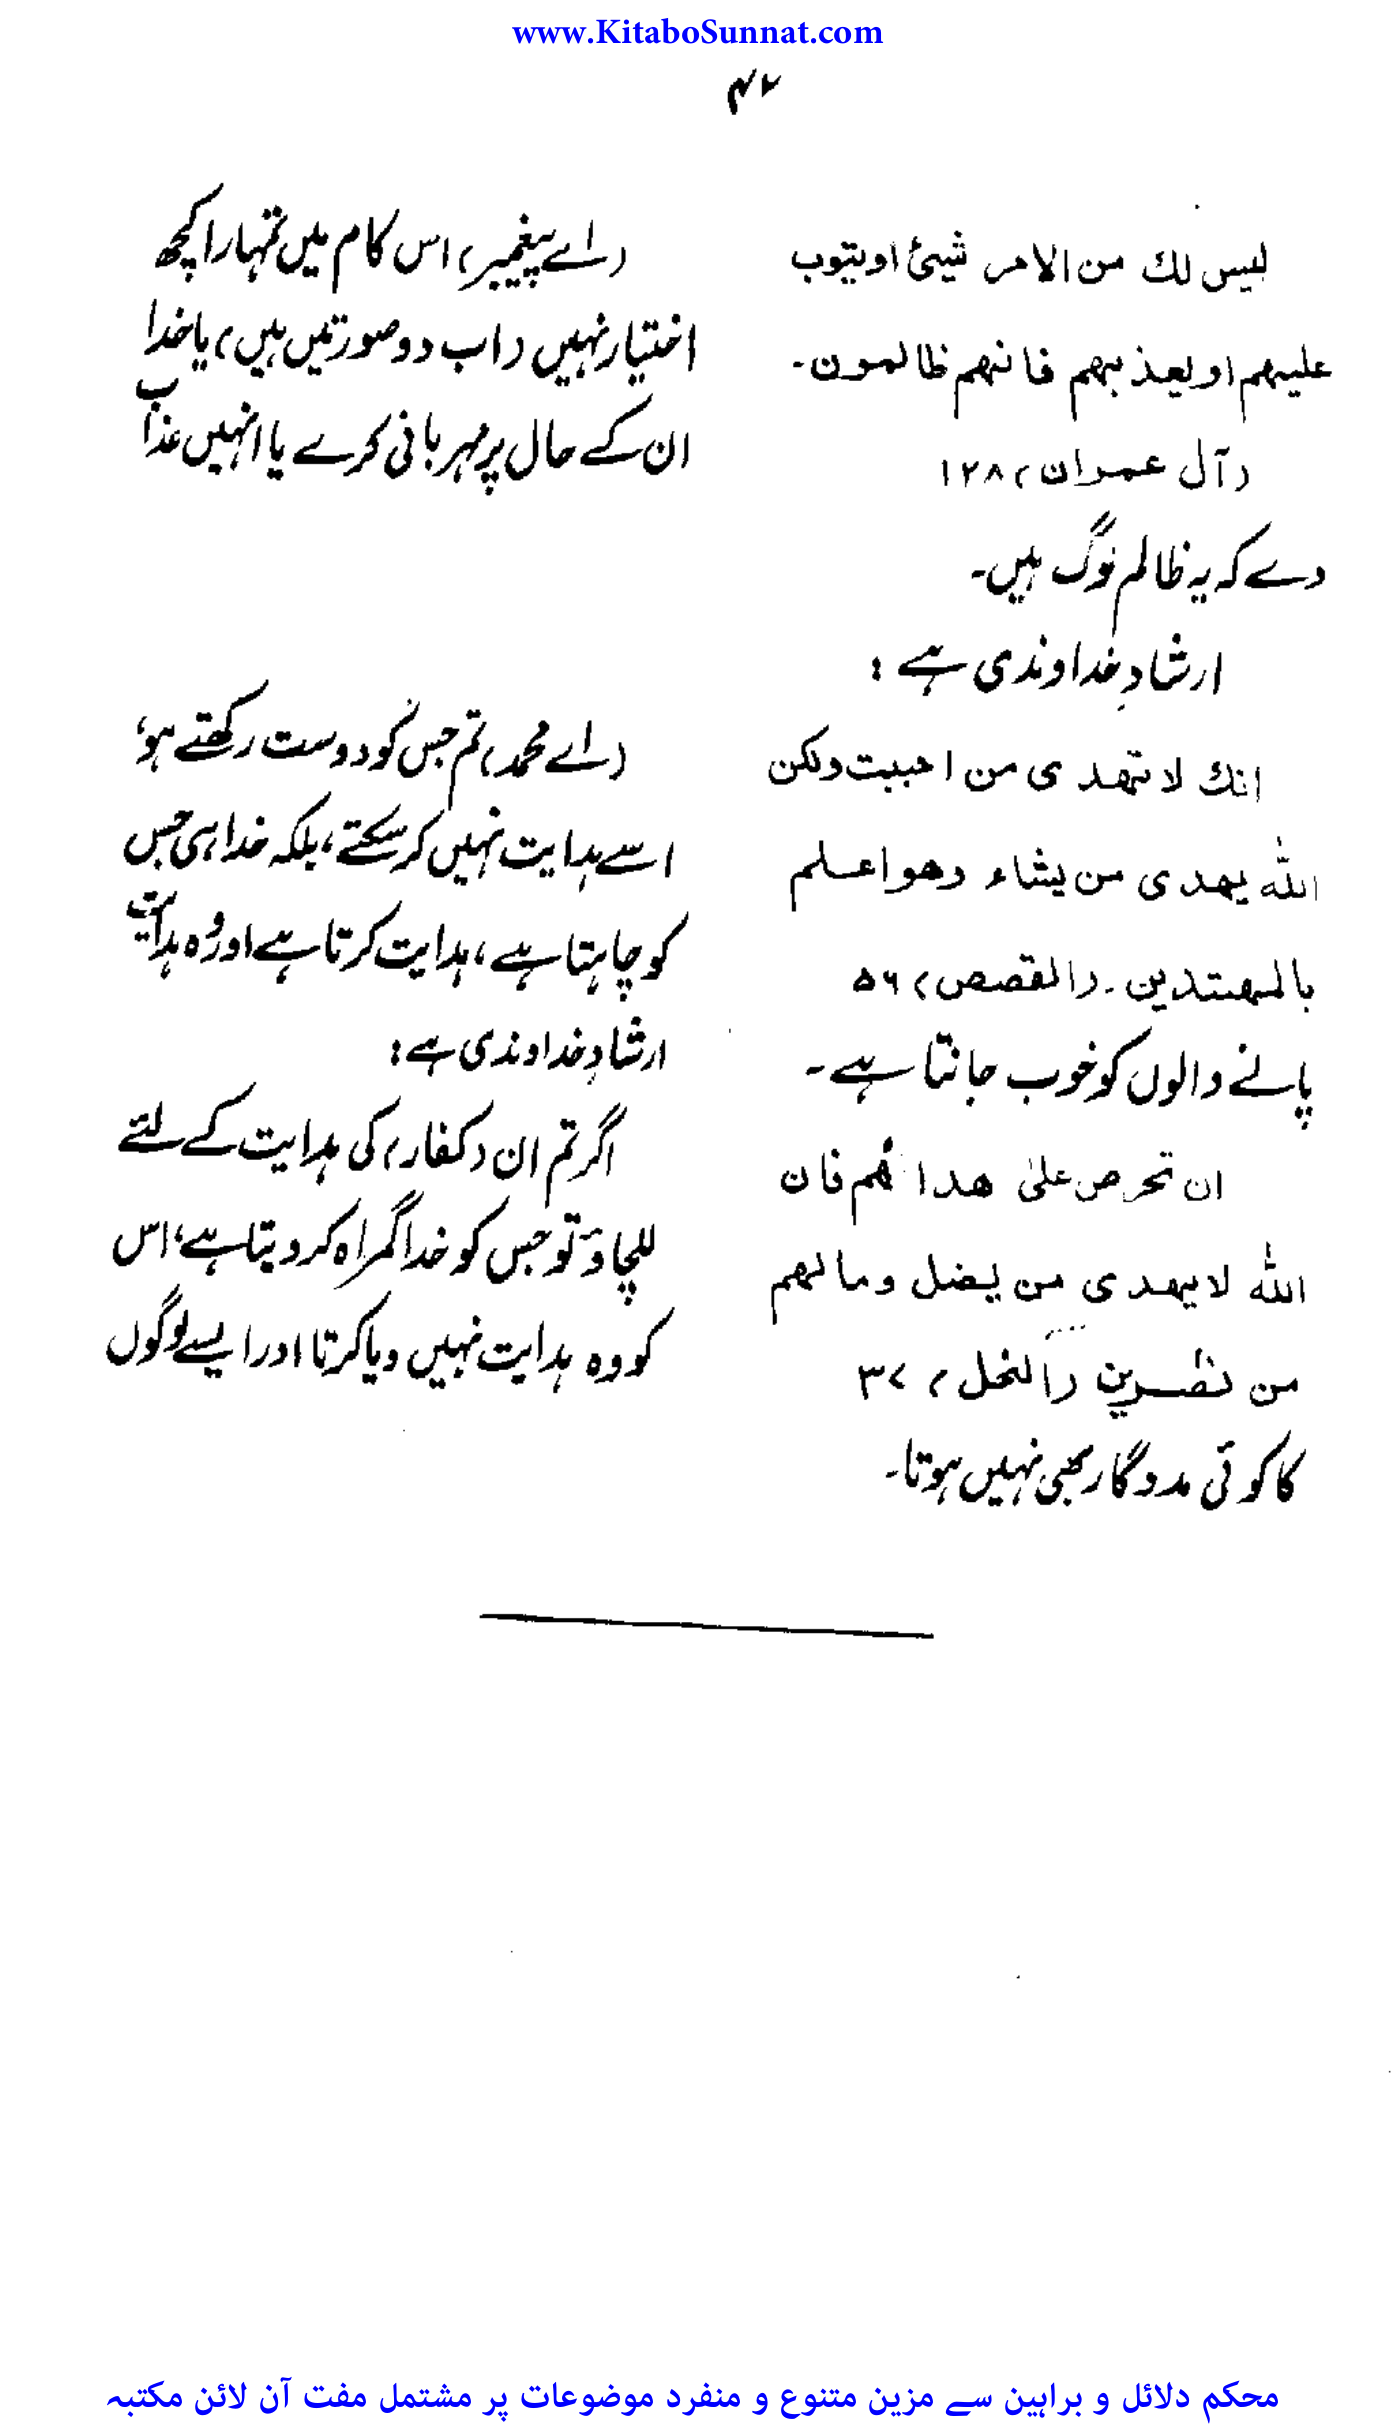 www.KitaboSunnat.com
۴۲
لیس لك من الامر شیئ اویتوب
علیہم اویعذبہم فانہم ظالمون۔
(آل عمران) ۱۲۸
(اے پیغمبر) اس کام میں تمہارا کچھ
اختیار نہیں (اب دو صورتیں ہیں) یا خدا
ان کے حال پر مہربانی کرے یا انہیں عذاب
دے کہ یہ ظالم لوگ ہیں۔
ارشادِ خداوندی ہے :
انك لا تہدی من احببت ولکن
اللہ یہدی من یشاء وھو اعلم
بالمہتدین۔ (القصص) ۵۶
(اے محمد) تم جس کو دوست رکھتے ہو،
اسے ہدایت نہیں کر سکتے، بلکہ خدا ہی جس
کو چاہتا ہے، ہدایت کرتا ہے اور وہ ہدایت
پانے والوں کو خوب جانتا ہے۔
ارشادِ خداوندی ہے :
ان تحرص علیٰ ھداہم فان
اللہ لا یہدی من یضل وما لہم
من نصرین (النحل) ۳۷
اگر تم ان (کفار) کی ہدایت کے لئے
للچاؤ تو جس کو خدا گمراہ کر دیتا ہے، اس
کو وہ ہدایت نہیں دیا کرتا اور ایسے لوگوں
کا کوئی مددگار بھی نہیں ہوتا۔
محکم دلائل و براہین سے مزین متنوع و منفرد موضوعات پر مشتمل مفت آن لائن مکتبہ